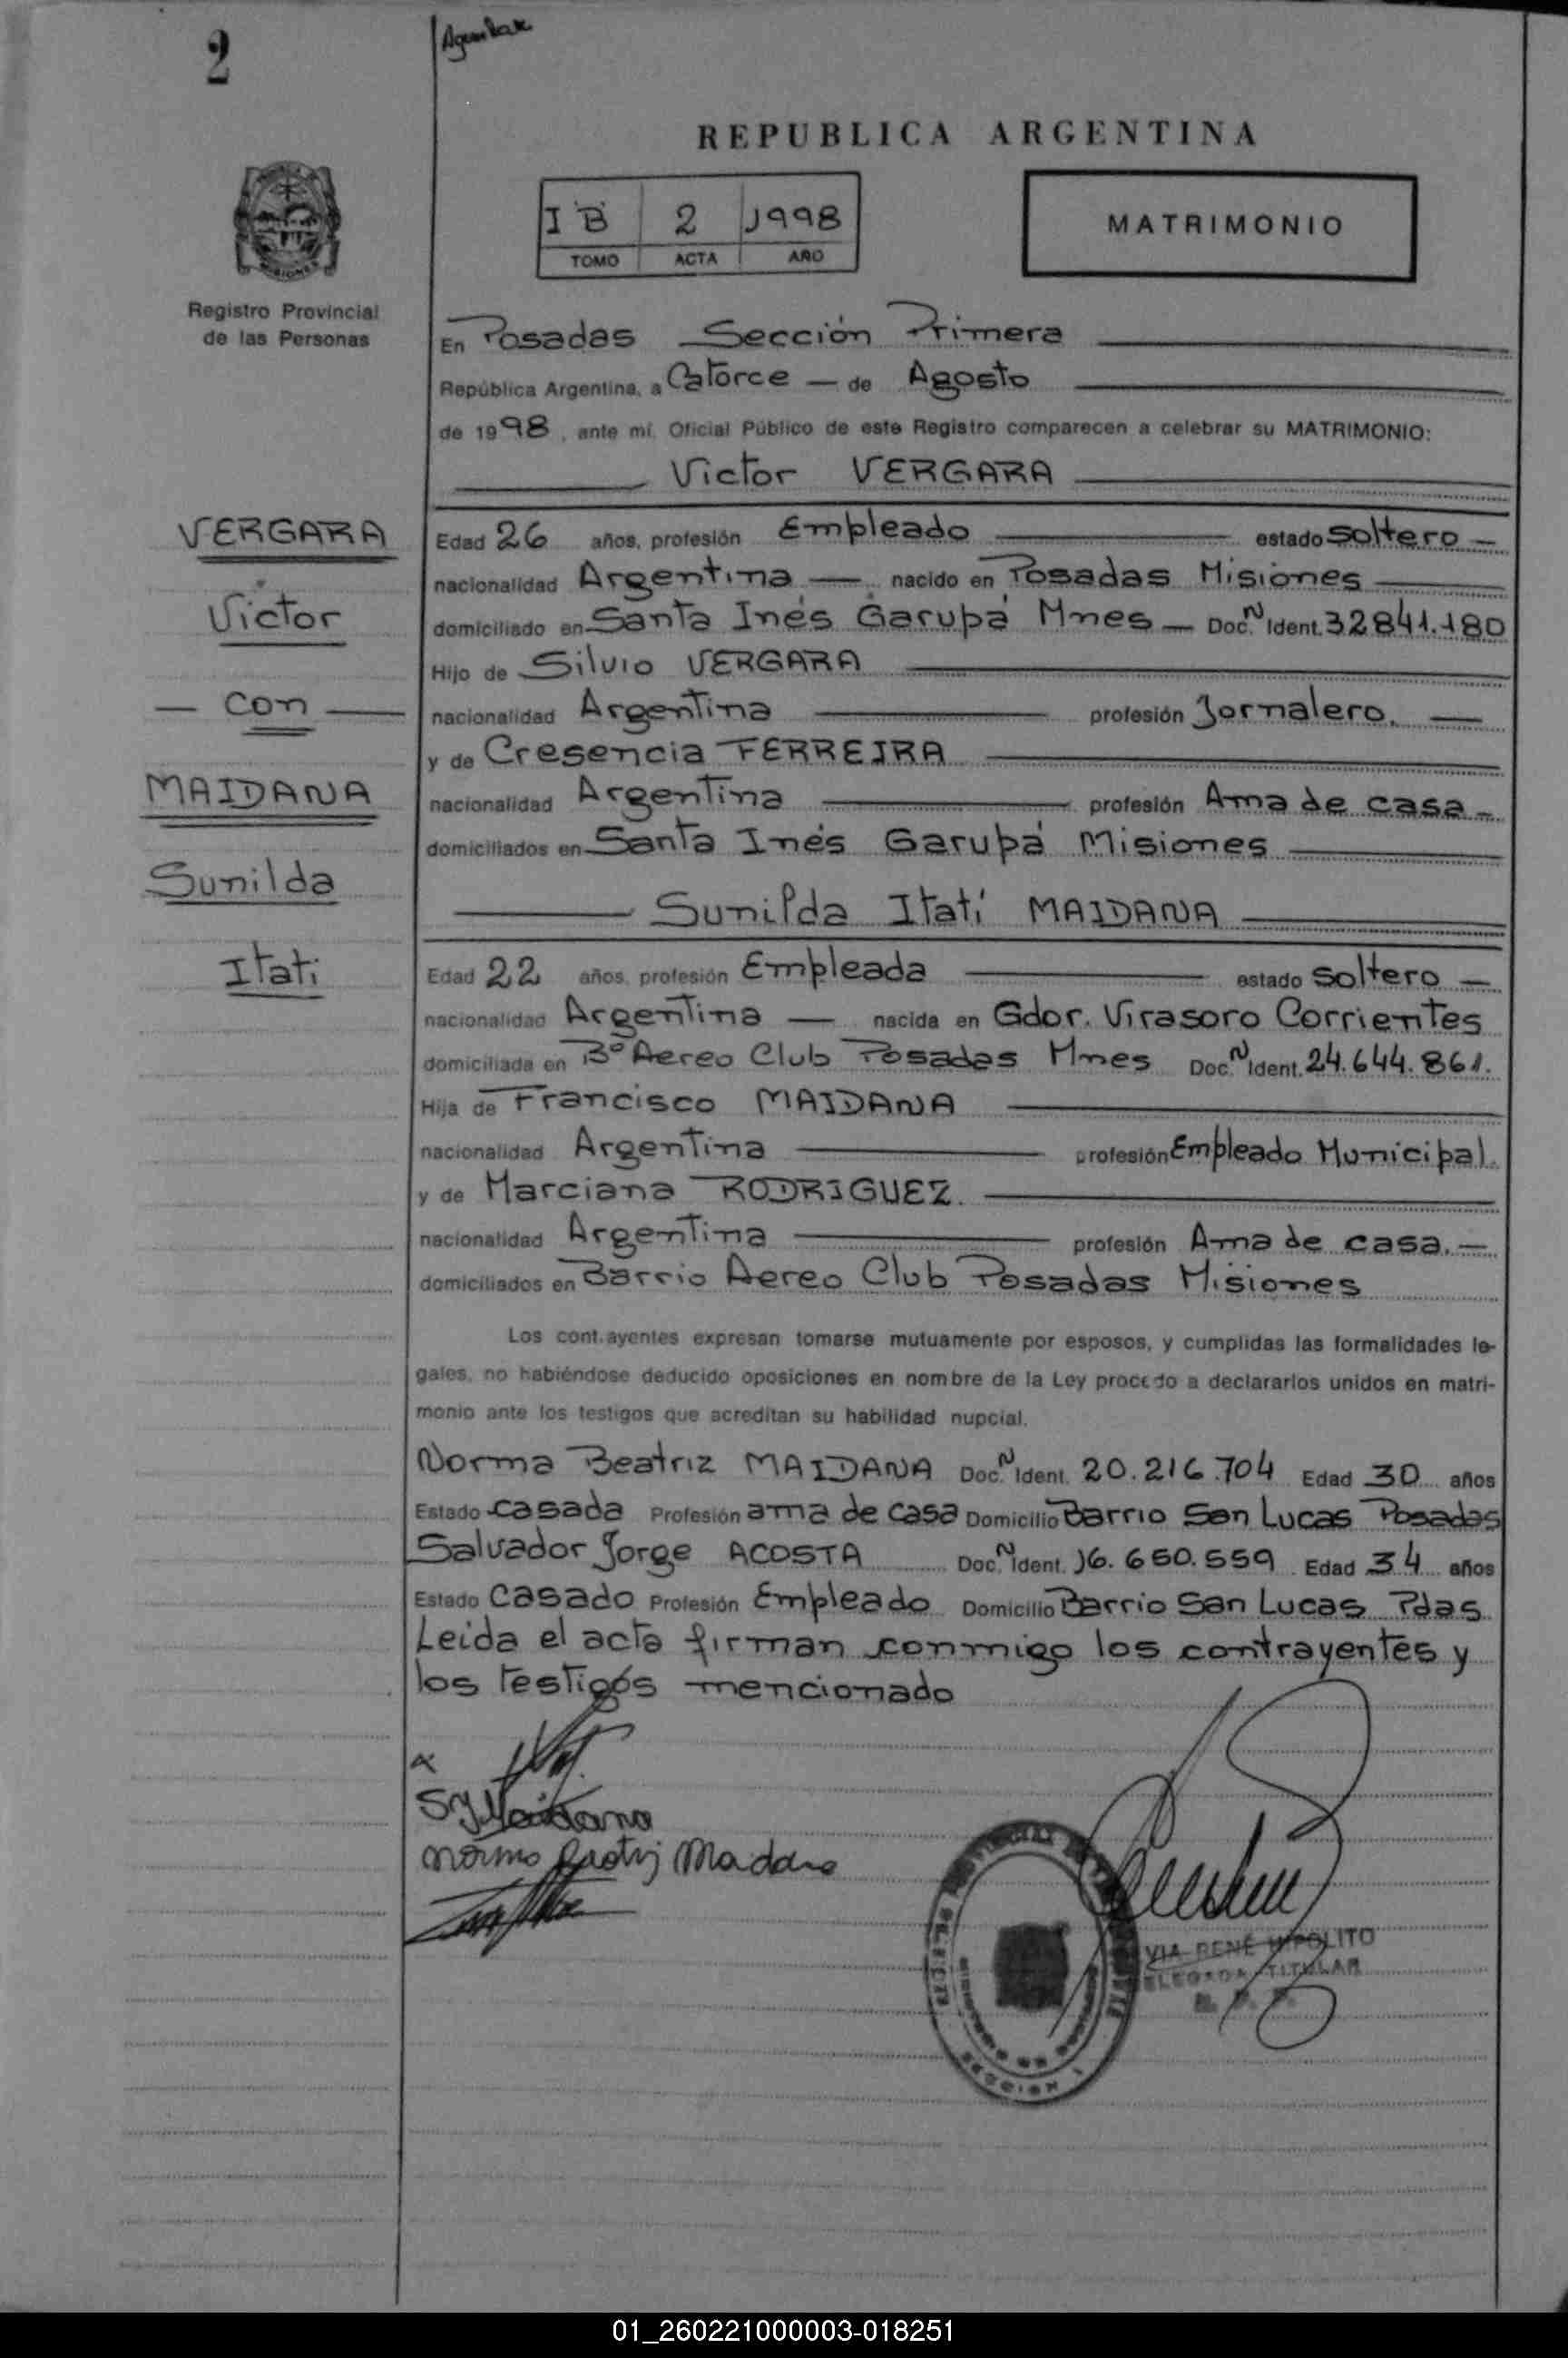 2
REPUBLICA ARGENTINA
IB 2 1998
TOMO ACTA AÑO
MATRIMONIO
MISIONES
Registro Provincial
de las Personas
En Posadas Sección Primera
República Argentina, a Catorce — de Agosto
de 1998, ante mí, Oficial Público de este Registro comparecen a celebrar su MATRIMONIO:
Victor VERGARA
VERGARA
Victor
— con —
MAIDANA
Sunilda
Itati
Edad 26 años, profesión Empleado estado soltero —
nacionalidad Argentina — nacido en Posadas Misiones
domiciliado en Santa Inés Garupá Mnes — Doc. N Ident. 32841.180
Hijo de Silvio VERGARA
nacionalidad Argentina profesión Jornalero. —
y de Cresencia FERREIRA
nacionalidad Argentina profesión Ama de casa —
domiciliados en Santa Inés Garupá Misiones
Sunilda Itatí MAIDANA
Edad 22 años, profesión Empleada estado soltero —
nacionalidad Argentina — nacida en Gdor. Virasoro Corrientes
domiciliada en Bº Aereo Club Posadas Mnes Doc. N Ident. 24.644.861.
Hija de Francisco MAIDANA
nacionalidad Argentina profesión Empleado Municipal.
y de Marciana RODRIGUEZ.
nacionalidad Argentina profesión Ama de casa. —
domiciliados en Barrio Aereo Club Posadas Misiones
Los contrayentes expresan tomarse mutuamente por esposos, y cumplidas las formalidades le-
gales, no habiéndose deducido oposiciones en nombre de la Ley procedo a declararlos unidos en matri-
monio ante los testigos que acreditan su habilidad nupcial.
Norma Beatriz MAIDANA Doc. N Ident. 20.216.704 Edad 30 años
Estado casada Profesión ama de casa Domicilio Barrio San Lucas Posadas
Salvador Jorge ACOSTA Doc. N Ident. 16.650.559 Edad 34 años
Estado casado Profesión Empleado Domicilio Barrio San Lucas Pdas
Leida el acta firman conmigo los contrayentes y
los testigos mencionado
VIA RENÉ HIPOLITO
ELEGADA TITULAR
SECCION 1
01_260221000003-018251